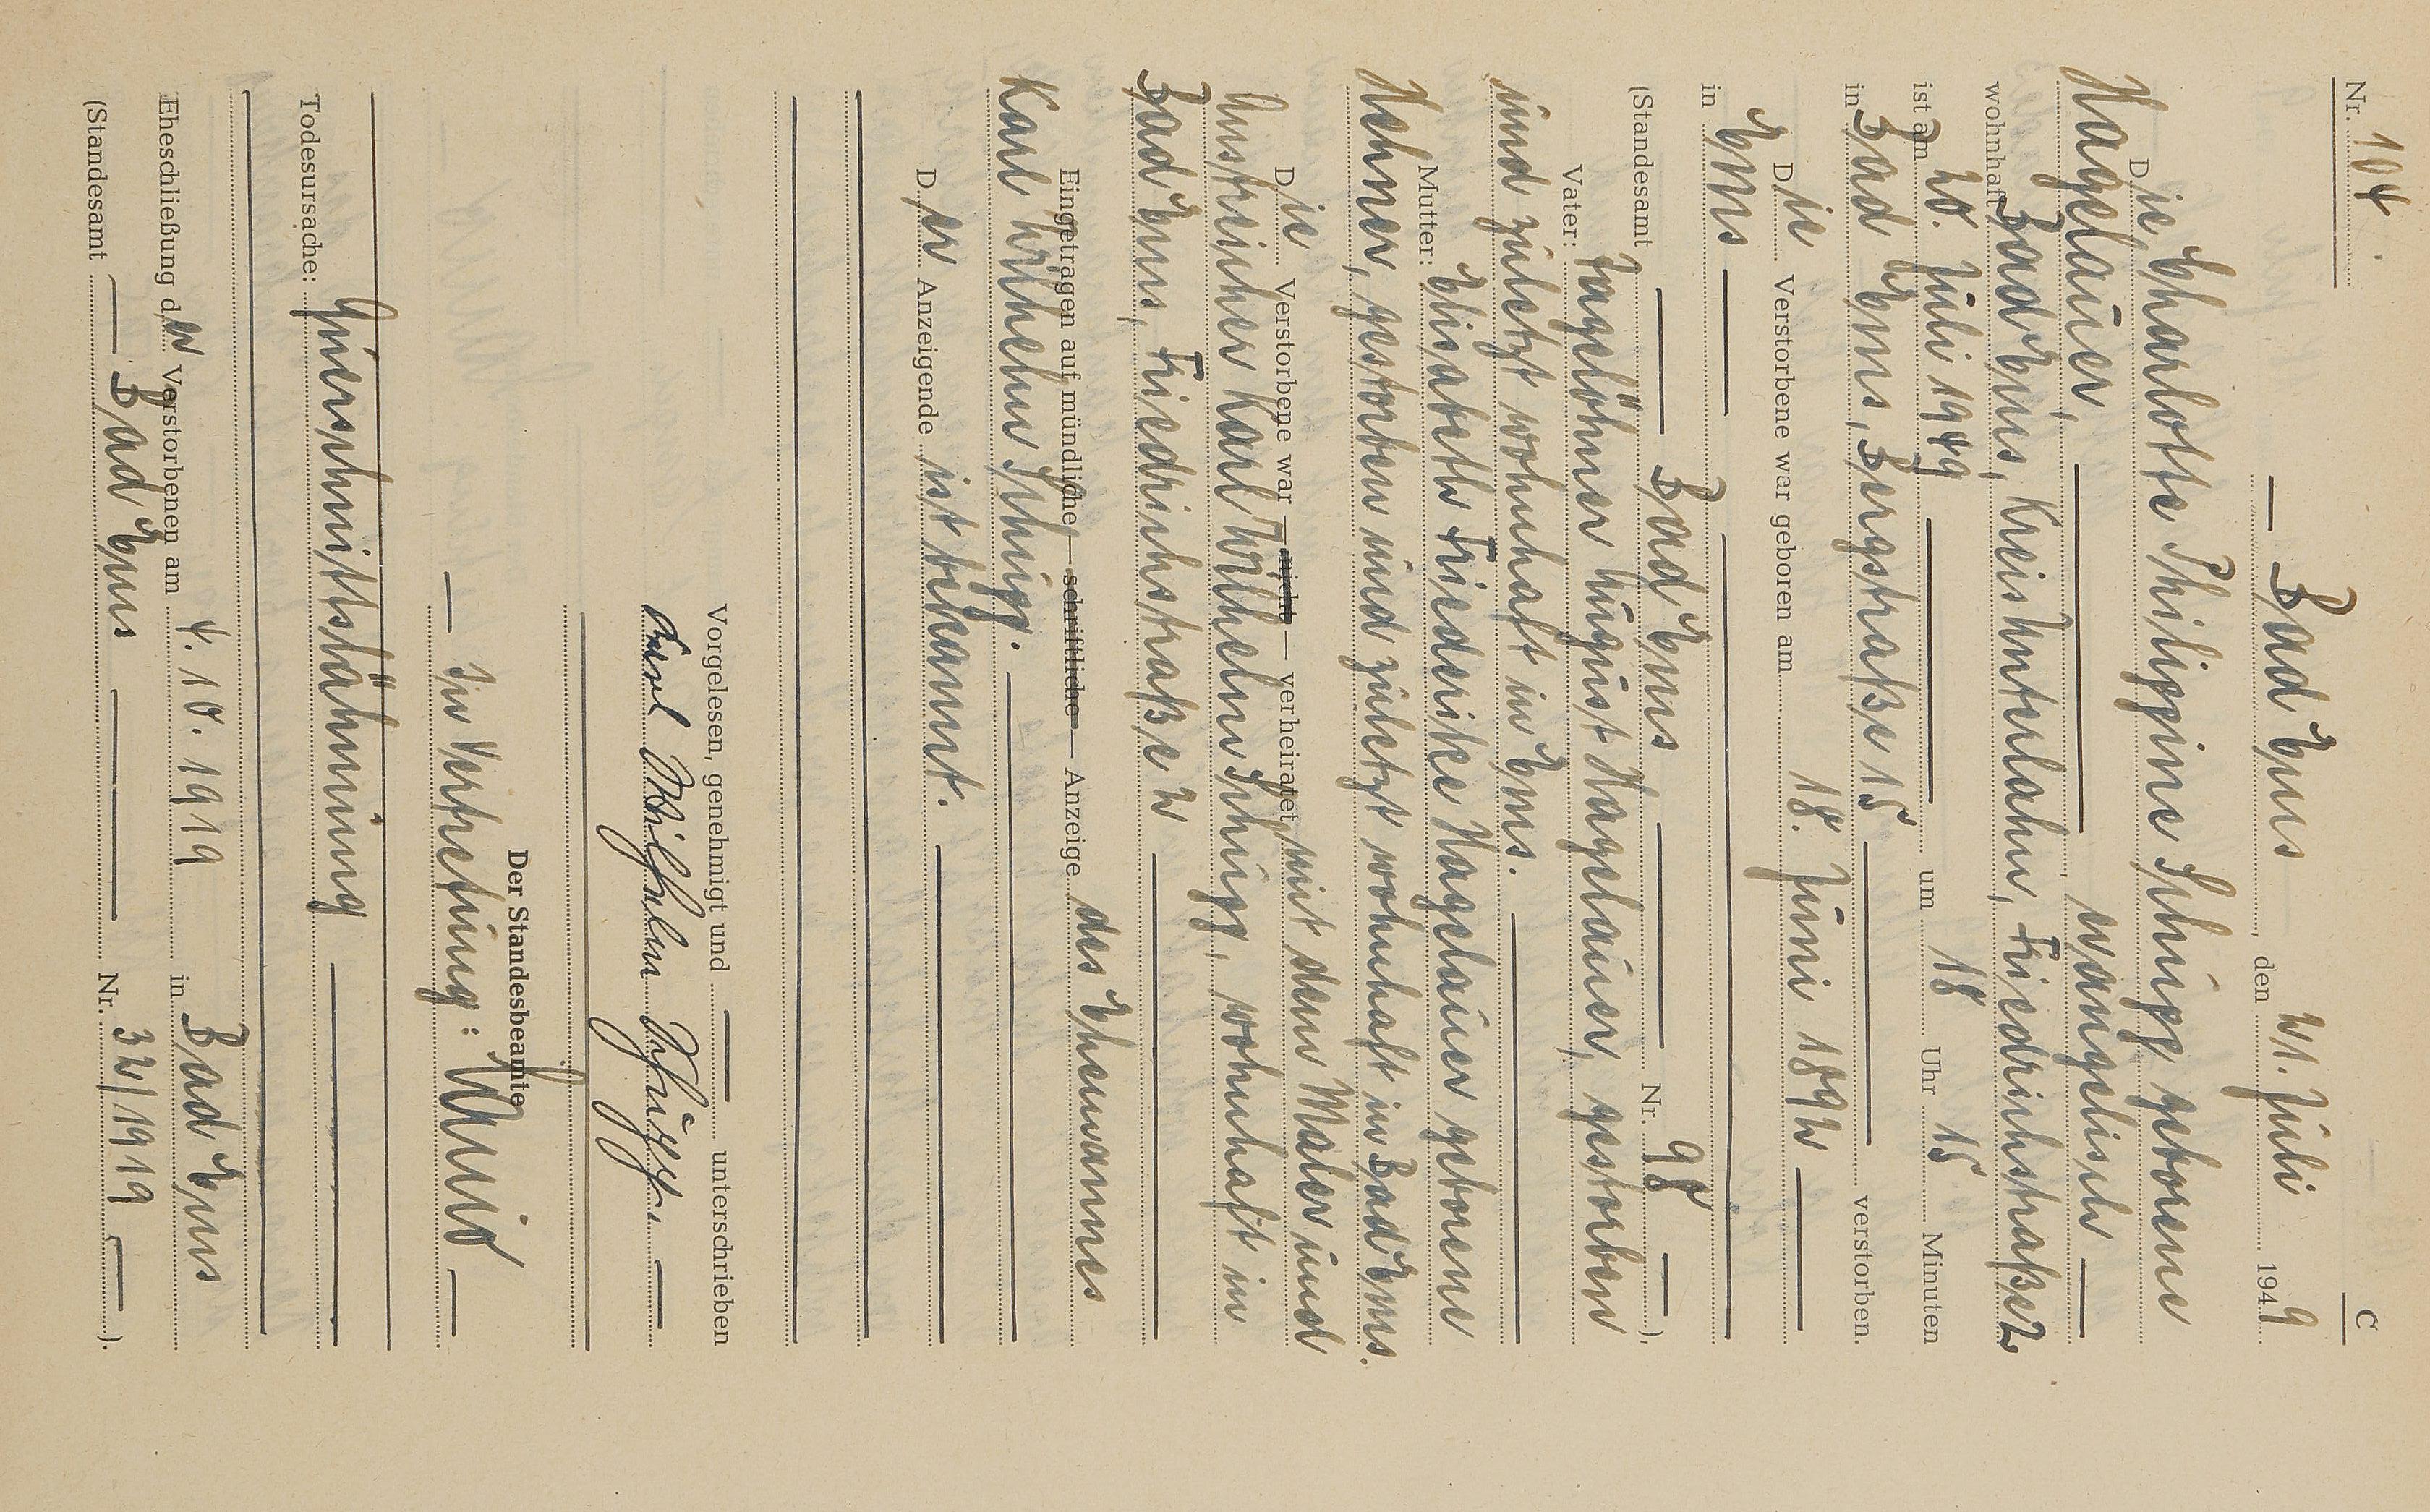 C
Nr. 104.
— Bad Ems, den 21. Juli 1949
Die Charlotte Philippine Schupp geborene
Hagelauer, — evangelisch —
wohnhaft Bad Ems, Kreis Unterlahn, Friedrichstraße 2
ist am 20. Juli 1949 — um 18 Uhr 15 Minuten
in Bad Ems, Bergstraße 15 — verstorben.
Die Verstorbene war geboren am 18. Juni 1892 —
in Ems —
(Standesamt — Bad Ems — Nr. 98 —),
Vater: Tagelöhner August Hagelauer, gestorben
und zuletzt wohnhaft in Ems. —
Mutter: Elisabeth Friederike Hagelauer geborene
Hehner, gestorben und zuletzt wohnhaft in Bad Ems.
Die Verstorbene war — nicht — verheiratet mit dem Maler und
Anstreicher Karl Wilhelm Schupp, wohnhaft in
Bad Ems, Friedrichstraße 2 —
Eingetragen auf mündliche — schriftliche — Anzeige des Ehemannes
Karl Wilhelm Schupp. —
Der Anzeigende ist bekannt. —
Vorgelesen, genehmigt und — unterschrieben
Karl Wilhelm Schupp. —
Der Standesbeamte
— In Vertretung: —
Todesursache: Querschnittslähmung —
Eheschließung der Verstorbenen am 4. 10. 1919 in Bad Ems
(Standesamt — Bad Ems — Nr. 32/1919 —).